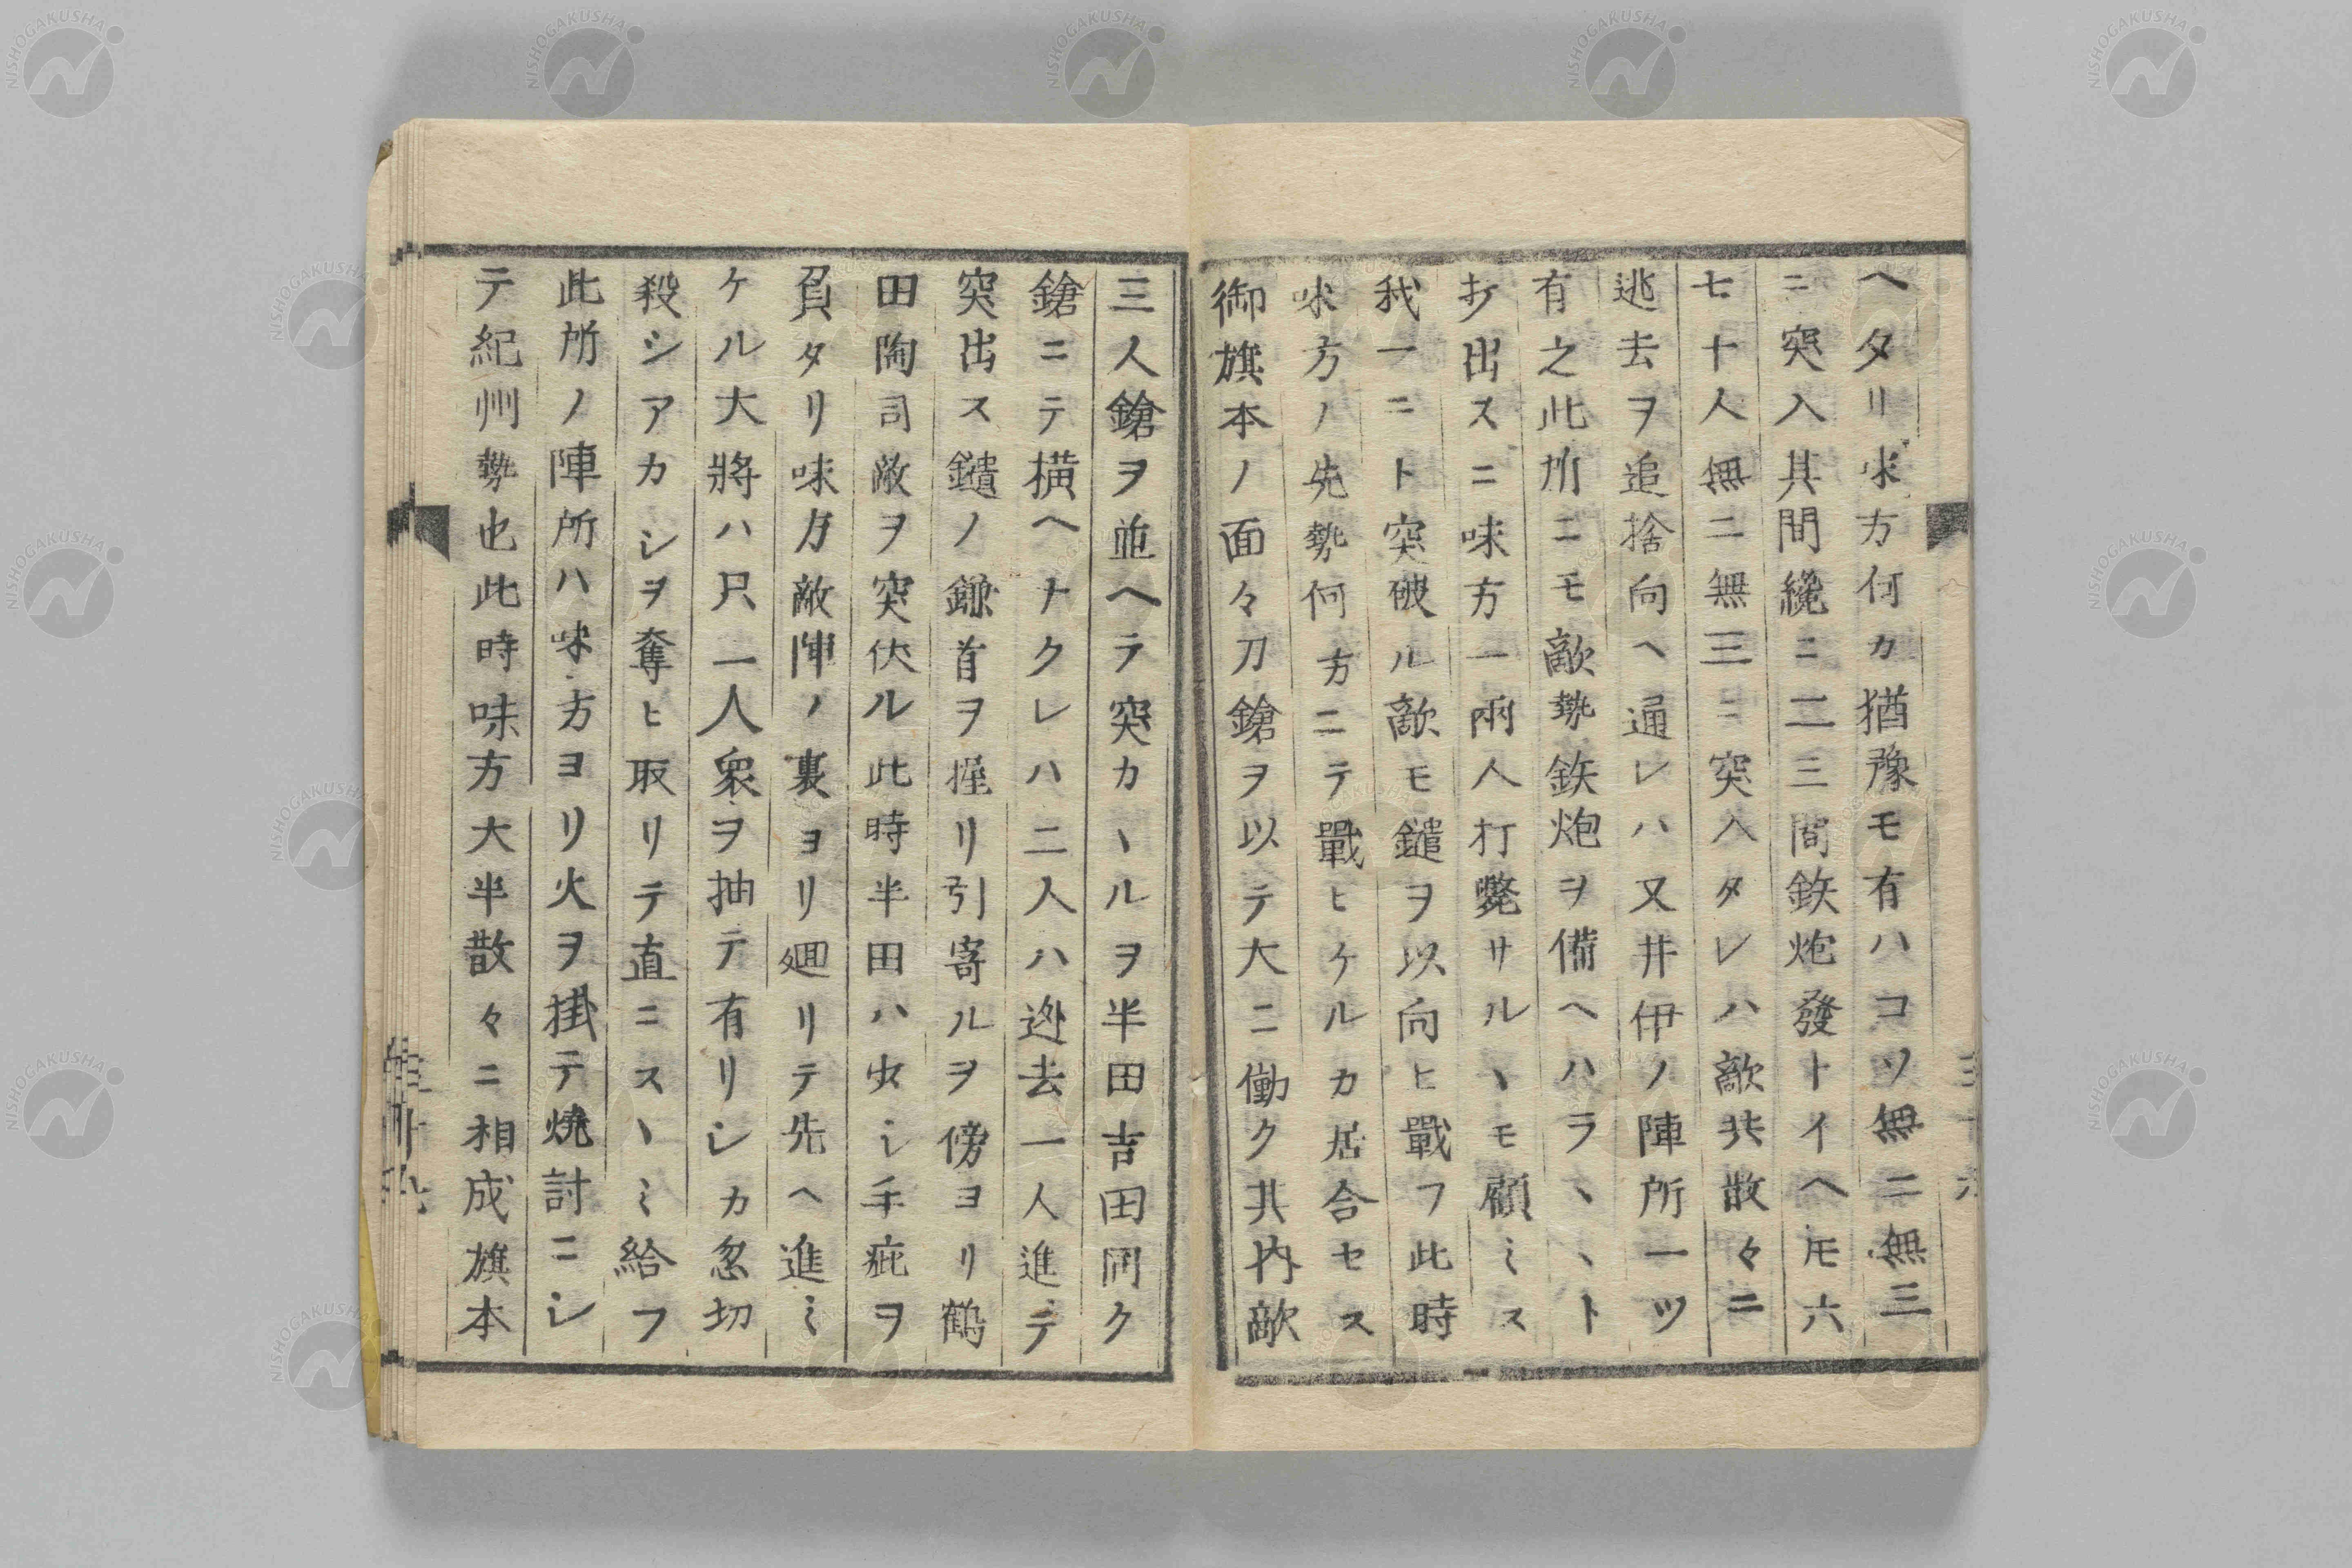 ヘタリ味方何カ猶豫モ有ハコソ無二無三
ニ突入其間纔ニ二三間鉃炮發トイヘ𪜈六
七十人無二無三ニ突入タレハ敵共散々ニ
逃去ヲ追捨向ヘ通レハ又井伊ノ陣所一ツ
有之此所ニモ敵勢鉃炮ヲ備ヘハラヽヽト
打出スニ味方一兩人打斃サルヽモ顧ミス
我一ニト突破ル敵モ鑓ヲ以向ヒ戰フ此時
味方ノ先勢何方ニテ戰ヒケルカ居合セス
御旗本ノ面々刀鎗ヲ以テ大ニ働ク其内敵
三人鎗ヲ並ヘテ突カヽルヲ半田吉田同ク
鎗ニテ横ヘナクレハ二人ハ迯去一人進テ
突出ス鑓ノ鎌首ヲ握リ引寄ルヲ傍ヨリ鶴
田陶司敵ヲ突伏ル此時半田ハ少シ手疵ヲ
負タリ味方敵陣ノ裏ヨリ廻リテ先ヘ進ミ
ケル大將ハ只一人衆ヲ抽テ有リシカ忽切
殺シアカシヲ奪ヒ取リテ直ニスヽミ給フ
此所ノ陣所ハ味方ヨリ火ヲ掛テ燒討ニシ
テ紀州勢也此時味方大半散々ニ相成旗本